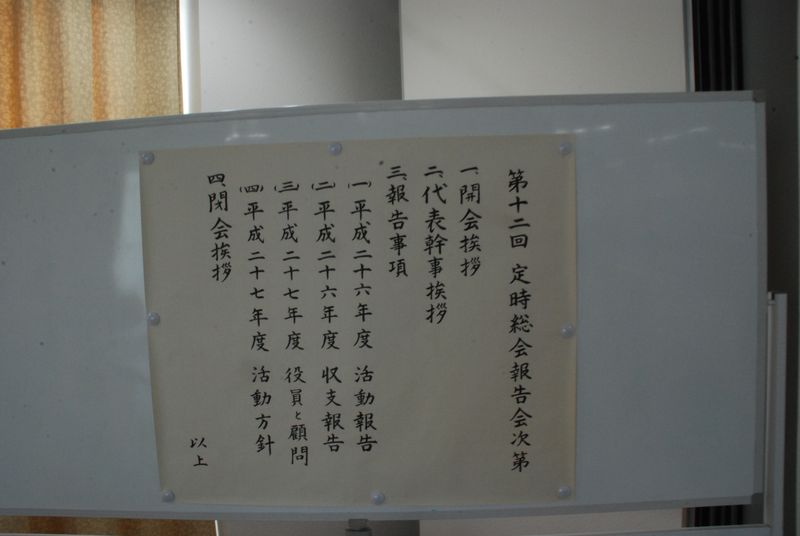 第十二回 定時総会報告会次第
一、開会挨拶
二、代表幹事挨拶
三、報告事項
(一)平成二十六年度 活動報告
(二)平成二十六年度 収支報告
(三)平成二十七年度 役員と顧問
(四)平成二十七年度 活動方針
四、閉会挨拶
以上